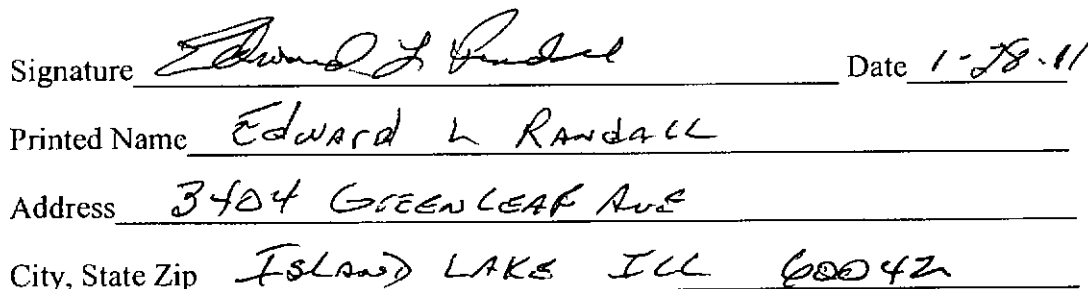 Signature Edward L Randall Date 1-28-11
Printed Name Edward L RANDALL
Address 3404 GREENLEAF AVE
City, State Zip ISLAND LAKE ILL 60042